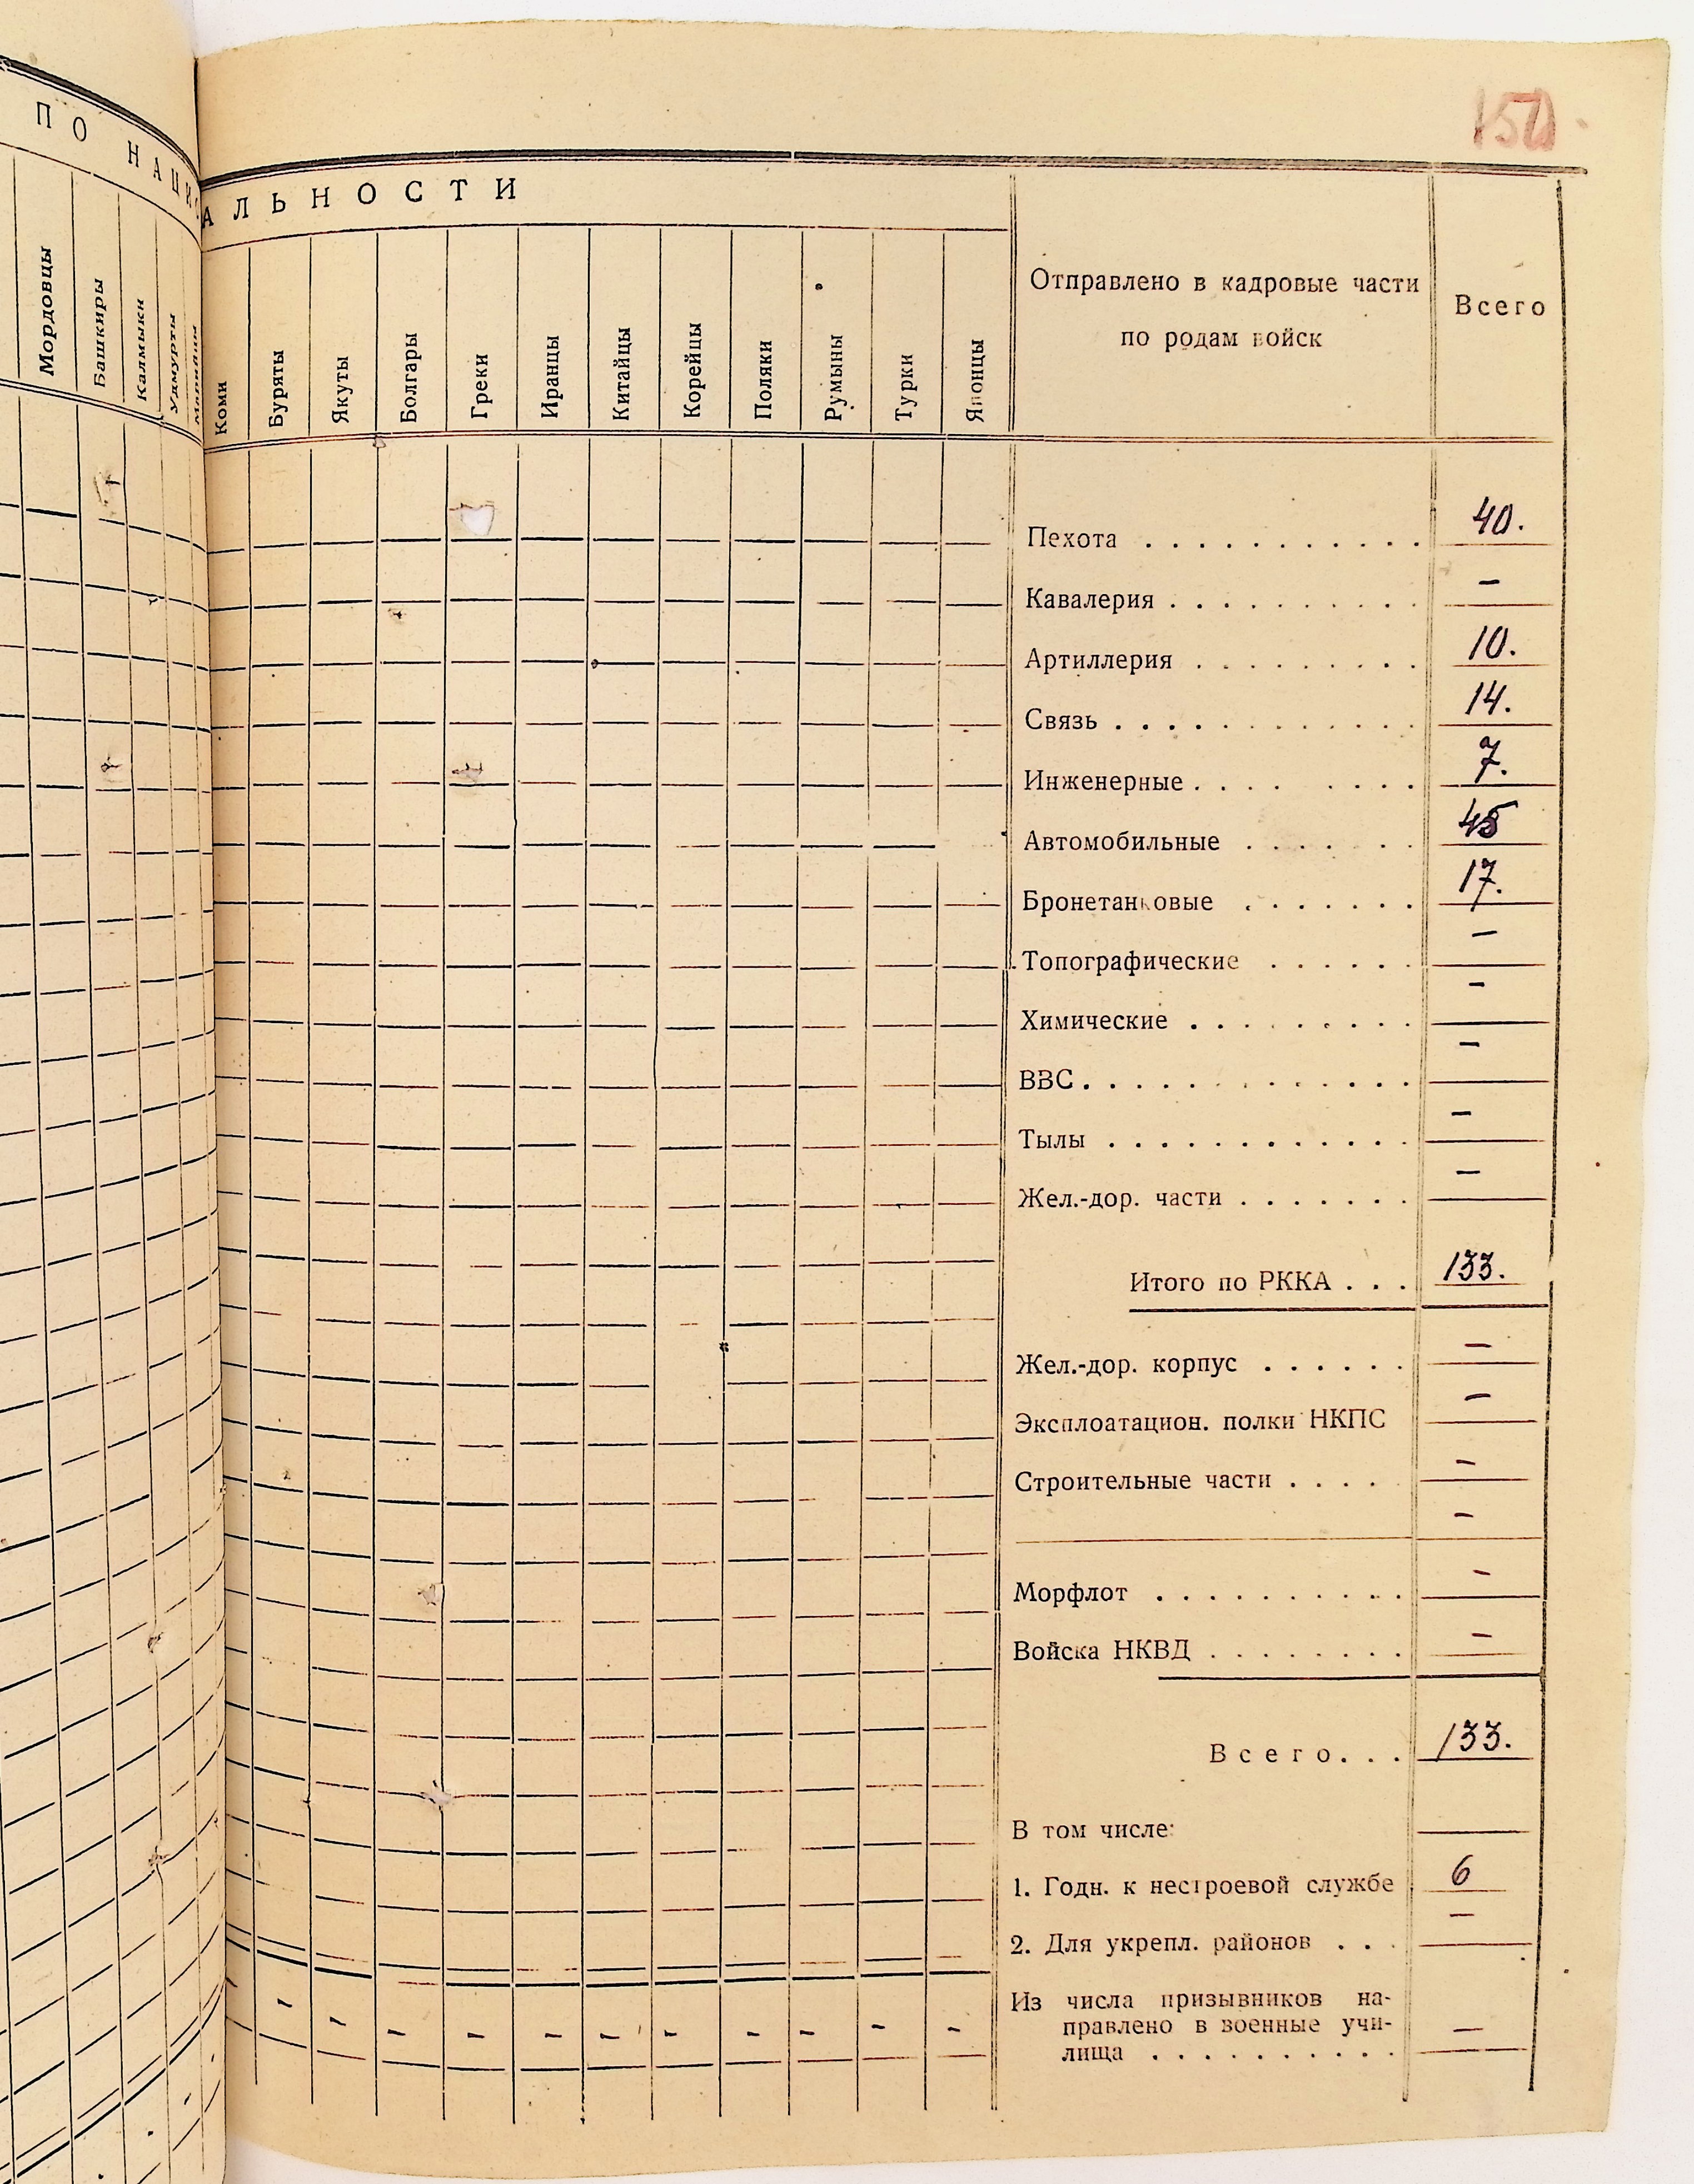 150
ПО НАЦИ
АЛЬНОСТИ
Мордовцы
Башкиры
Калмыки
Удмурты
Марийцы
Коми
Буряты
Якуты
Болгары
Греки
Иранцы
Китайцы
Корейцы
Поляки
Румыны
Турки
Японцы
Отправлено в кадровые части
по родам войск
Всего
Пехота . . . . . . . . . . . 40.
Кавалерия . . . . . . . . . . –
Артиллерия . . . . . . . . . 10.
Связь . . . . . . . . . . . . 14.
Инженерные . . . . . . . . 7.
Автомобильные . . . . . . 45
Бронетанковые . . . . . . . 17.
Топографические . . . . . . –
Химические . . . . . . . . . –
ВВС . . . . . . . . . . . . . –
Тылы . . . . . . . . . . . . –
Жел.-дор. части . . . . . . . –
Итого по РККА . . . 133.
Жел.-дор. корпус . . . . . . –
Эксплоатацион. полки НКПС –
Строительные части . . . . –
–
Морфлот . . . . . . . . . . –
Войска НКВД . . . . . . . . –
Всего . . . 133.
В том числе:
1. Годн. к нестроевой службе 6
2. Для укрепл. районов . . . –
Из числа призывников на-
правлено в военные учи-
лища . . . . . . . . . . –
– – – – – – – – – – –